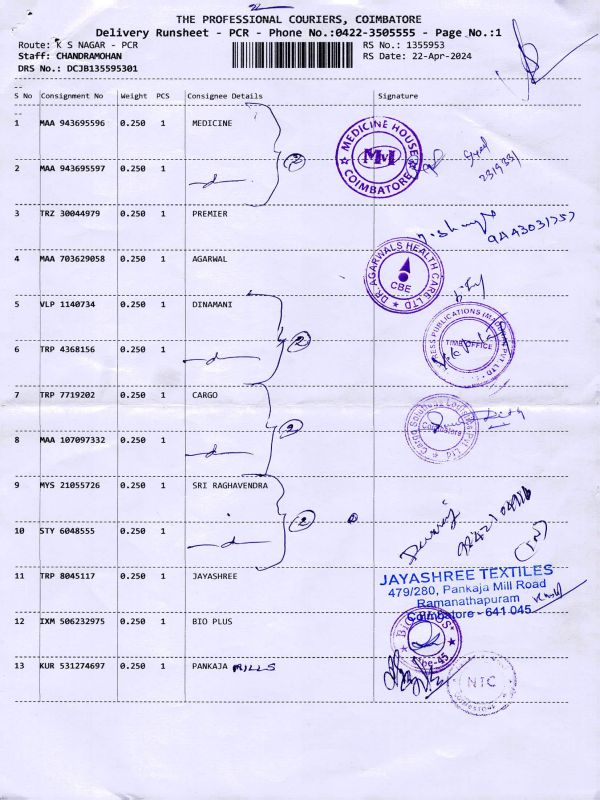 THE PROFESSIONAL COURIERS, COIMBATORE
Delivery Runsheet - PCR - Phone No.:0422-3505555 - Page No.:1
Route: K S NAGAR - PCR
RS No.: 1355953
Staff: CHANDRAMOHAN
RS Date: 22-Apr-2024
DRS No.: DCJB135595301
S No Consignment No Weight PCS Consignee Details Signature
1 MAA 943695596 0.250 1 MEDICINE
2 MAA 943695597 0.250 1
2
MEDICINE HOUSE
MVI
COIMBATORE
2319331
3 TRZ 30044979 0.250 1 PREMIER
4 MAA 703629058 0.250 1 AGARWAL
DR. AGARWALS HEALTH CARE LTD
CBE
5 VLP 1140734 0.250 1 DINAMANI
6 TRP 4368156 0.250 1
2
TIME OFFICE
7 TRP 7719202 0.250 1 CARGO
8 MAA 107097332 0.250 1
2
Coimbatore
9 MYS 21055726 0.250 1 SRI RAGHAVENDRA
10 STY 6048555 0.250 1
2
11 TRP 8045117 0.250 1 JAYASHREE
JAYASHREE TEXTILES
479/280, Pankaja Mill Road
Ramanathapuram
Coimbatore - 641 045
12 IXM 506232975 0.250 1 BIO PLUS
13 KUR 531274697 0.250 1 PANKAJA MILLS
NTC
COIMBATORE